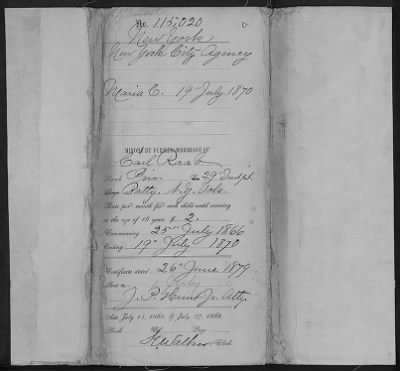 No. 115,020
New York,
New York City Agency
Maria C. 19" July 1870
MINOR OF FORMER MARRIAGE OF
Carl Raab
Rank Priv. 29" Indpt.
Batty. N.Y. Vols.
Rate per month for each child until arriving
at the age of 16 years, $ 2.
Commencing 25" July 1866
Ending 19" July 1870
Certificate dated 26" June 1879.
Sent to
J. P. Hunt Jr. Atty.
Acts July 14, 1862, & July 27, 1868.
Book Vol. Page
Clerk.